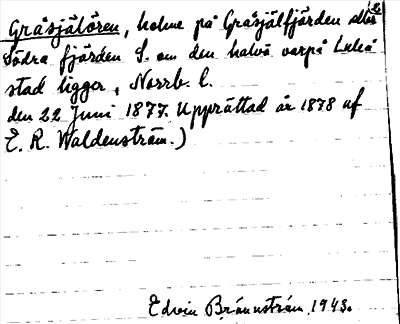 Gråsjälören, holme på Gråsjälfjärden eller
Södra fjärden S. om den halvö varpå Luleå
stad ligger, Norrb. l.
den 22 Juni 1877. Upprättad år 1878 af
E. R. Waldenström.)
Edvin Brännström, 1943.